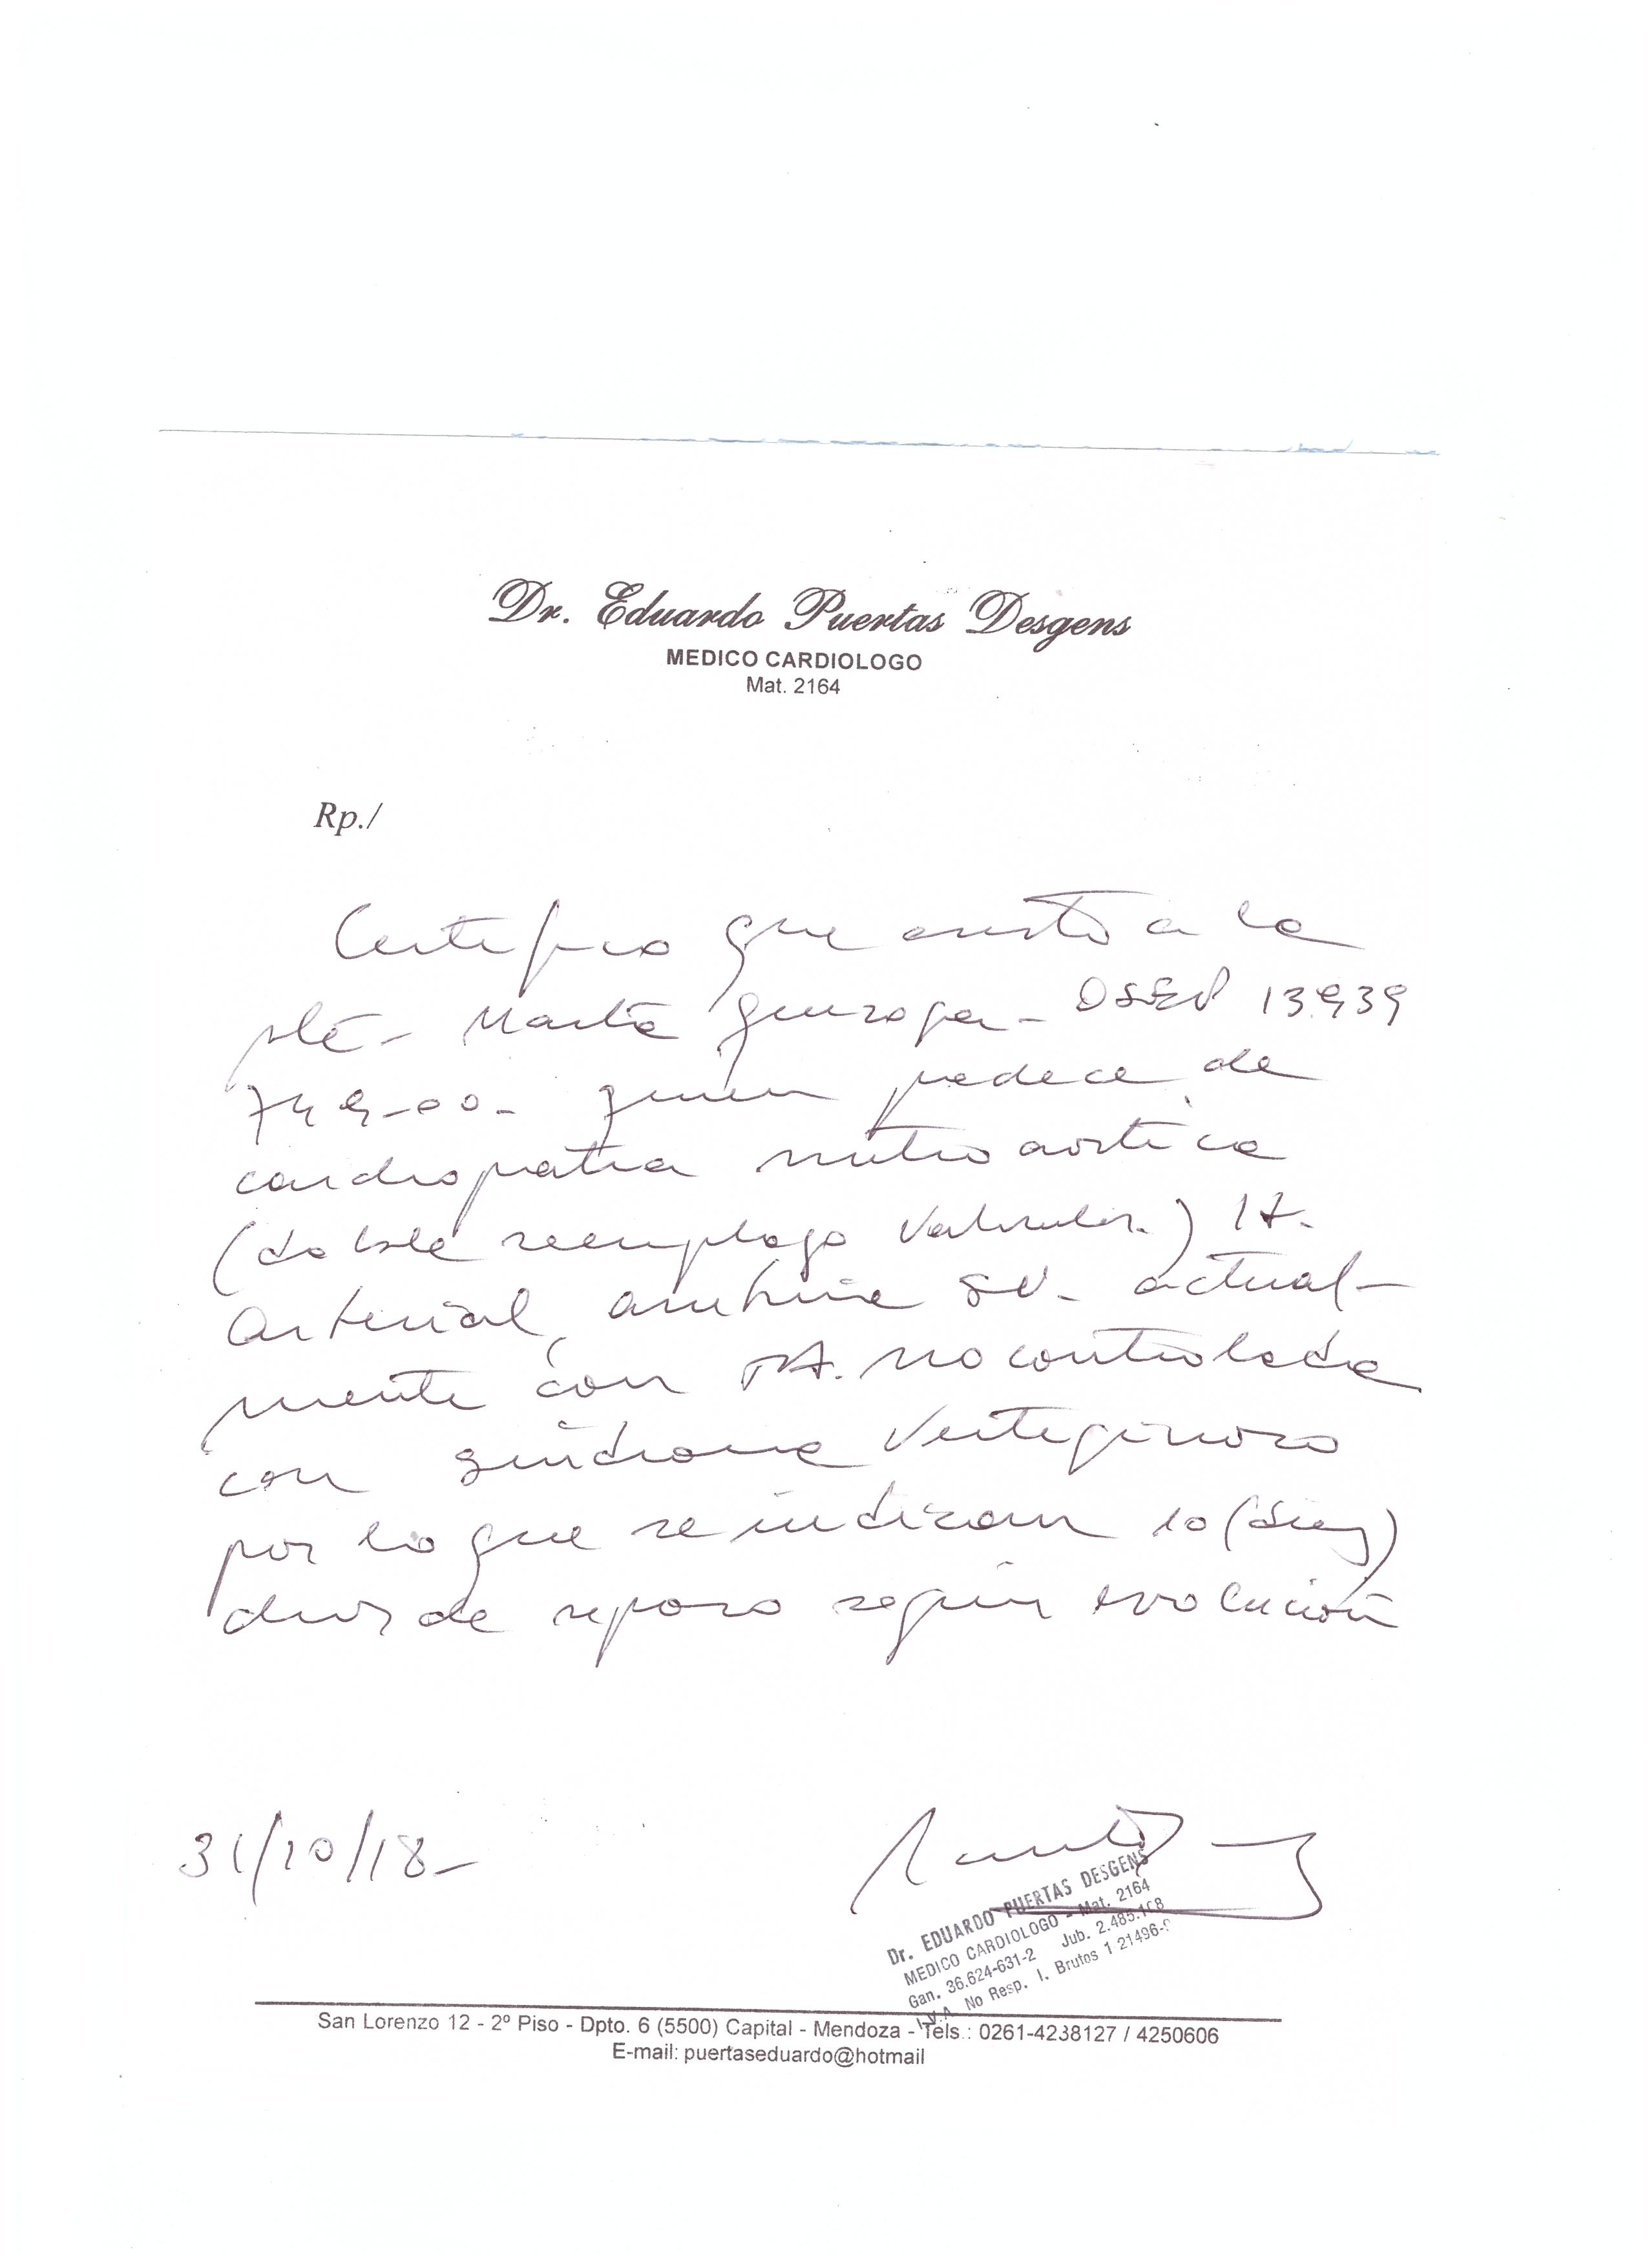 Dr. Eduardo Puertas Desgens
MEDICO CARDIOLOGO
Mat. 2164
Rp./
Certifico que asisto a la
pte- Marta - OSEP 13939
749-00- quien padece de
cardiopatia mitro aortica
(doble reemplazo valvular.) H.
Arterial, arritmia SV- actual-
mente con TA. no controlada
con sindrome vertiginoso
por lo que se indican 10 (diez)
dias de reposo según evolución
31/10/18-
Dr. EDUARDO PUERTAS DESGENS
MEDICO CARDIOLOGO - Mat. 2164
Gan. 36.624-631-2 Jub.
I.V.A. No Resp. I. Brutos
San Lorenzo 12 - 2º Piso - Dpto. 6 (5500) Capital - Mendoza - Tels.: 0261-4238127 / 4250606
E-mail: puertaseduardo@hotmail